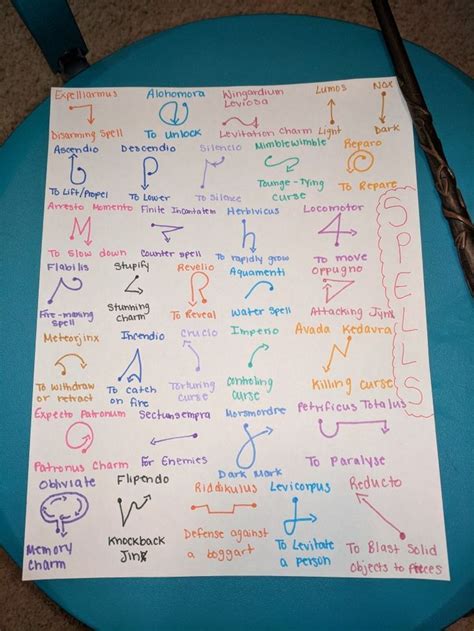 Expelliarmus
Disarming Spell
Alohomora
To Unlock
Wingardium
Leviosa
Levitation Charm
Lumos
Light
Nox
Dark
Ascendio
To Lift/Propel
Descendio
To Lower
Silencio
To Silence
Mimblewimble
Tounge-Tying
curse
Reparo
To Repare
Arresto Momento
To Slow down
Finite Incantatem
Counter spell
Herbivicus
To rapidly grow
Locomotor
To move
Flabilis
Stupify
Stunning
charm
Revelio
To Reveal
Aquamenti
Water Spell
oppugno
Attacking Jynx
Meteorjinx
To withdraw
or retract
Incendio
To catch
on fire
Crucio
Torturing
curse
Imperio
controling
curse
Avada Kedavra
Killing curse
Expecto Patronum
Patronus Charm
Sectumsempra
For Enemies
Morsmordre
Dark Mark
Petrificus Totalus
To Paralyse
Obliviate
Memory
Charm
Flipendo
Knockback
Jinx
Riddikulus
Defense against
a boggart
Levicorpus
To Levitate
a person
Reducto
To Blast Solid
objects to
SPELLS